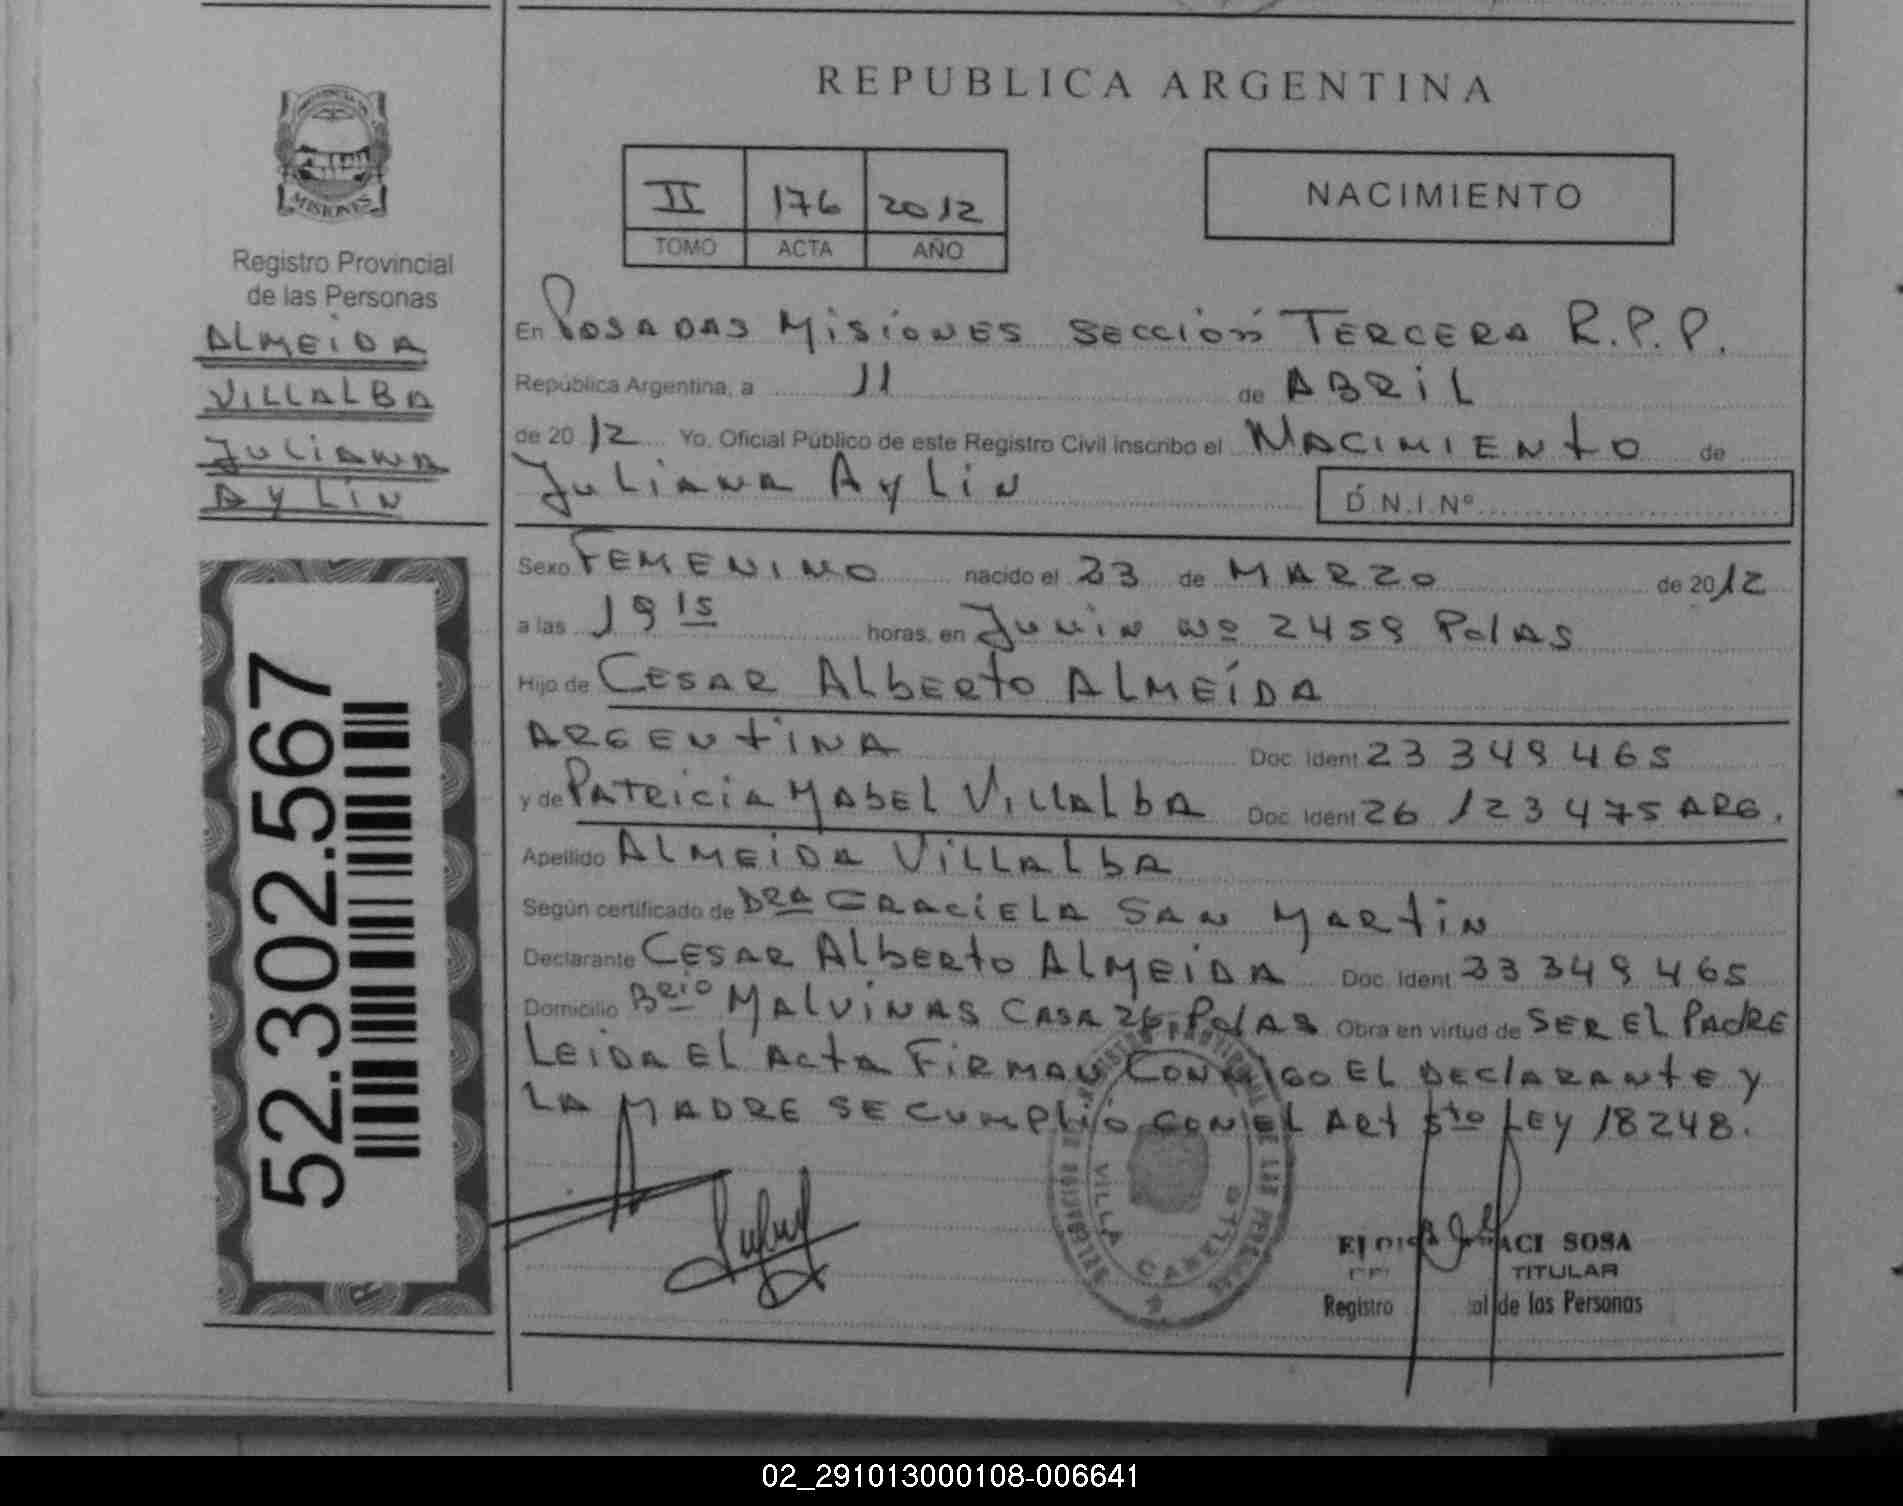 REPUBLICA ARGENTINA
MISIONES
Registro Provincial
de las Personas
ALMEIDA
VILLALBA
JULIANA
AYLIN
52.302.567
II 176 2012
TOMO ACTA AÑO
NACIMIENTO
En POSADAS MISIONES SECCIÓN TERCERA R.P.P.
República Argentina, a 11 de ABRIL
de 2012 Yo, Oficial Público de este Registro Civil inscribo el NACIMIENTO de
JULIANA AYLIN
D.N.I.Nº
Sexo FEMENINO nacido el 23 de MARZO de 2012
a las 19 15 horas, en JUNIN Nº 2459 PdAS
Hijo de CESAR ALBERTO ALMEÍDA
ARGENTINA Doc. Ident. 23 349 465
y de PATRICIA MABEL VILLALBA Doc. Ident 26 123 475 ARG.
Apellido ALMEIDA VILLALBA
Según certificado de DRA GRACIELA SAN MARTIN
Declarante CESAR ALBERTO ALMEIDA Doc. Ident 23 349 465
Domicilio Brio MALVINAS CASA 26, PdAS Obra en virtud de SER EL PADRE
LEIDA EL ACTA FIRMAN CONMIGO EL DECLARANTE Y
LA MADRE SE CUMPLIÓ CON EL ART 5to LEY 18248.
VILLA CABELLO
SOSA
TITULAR
Registro de las Personas
02_291013000108-006641